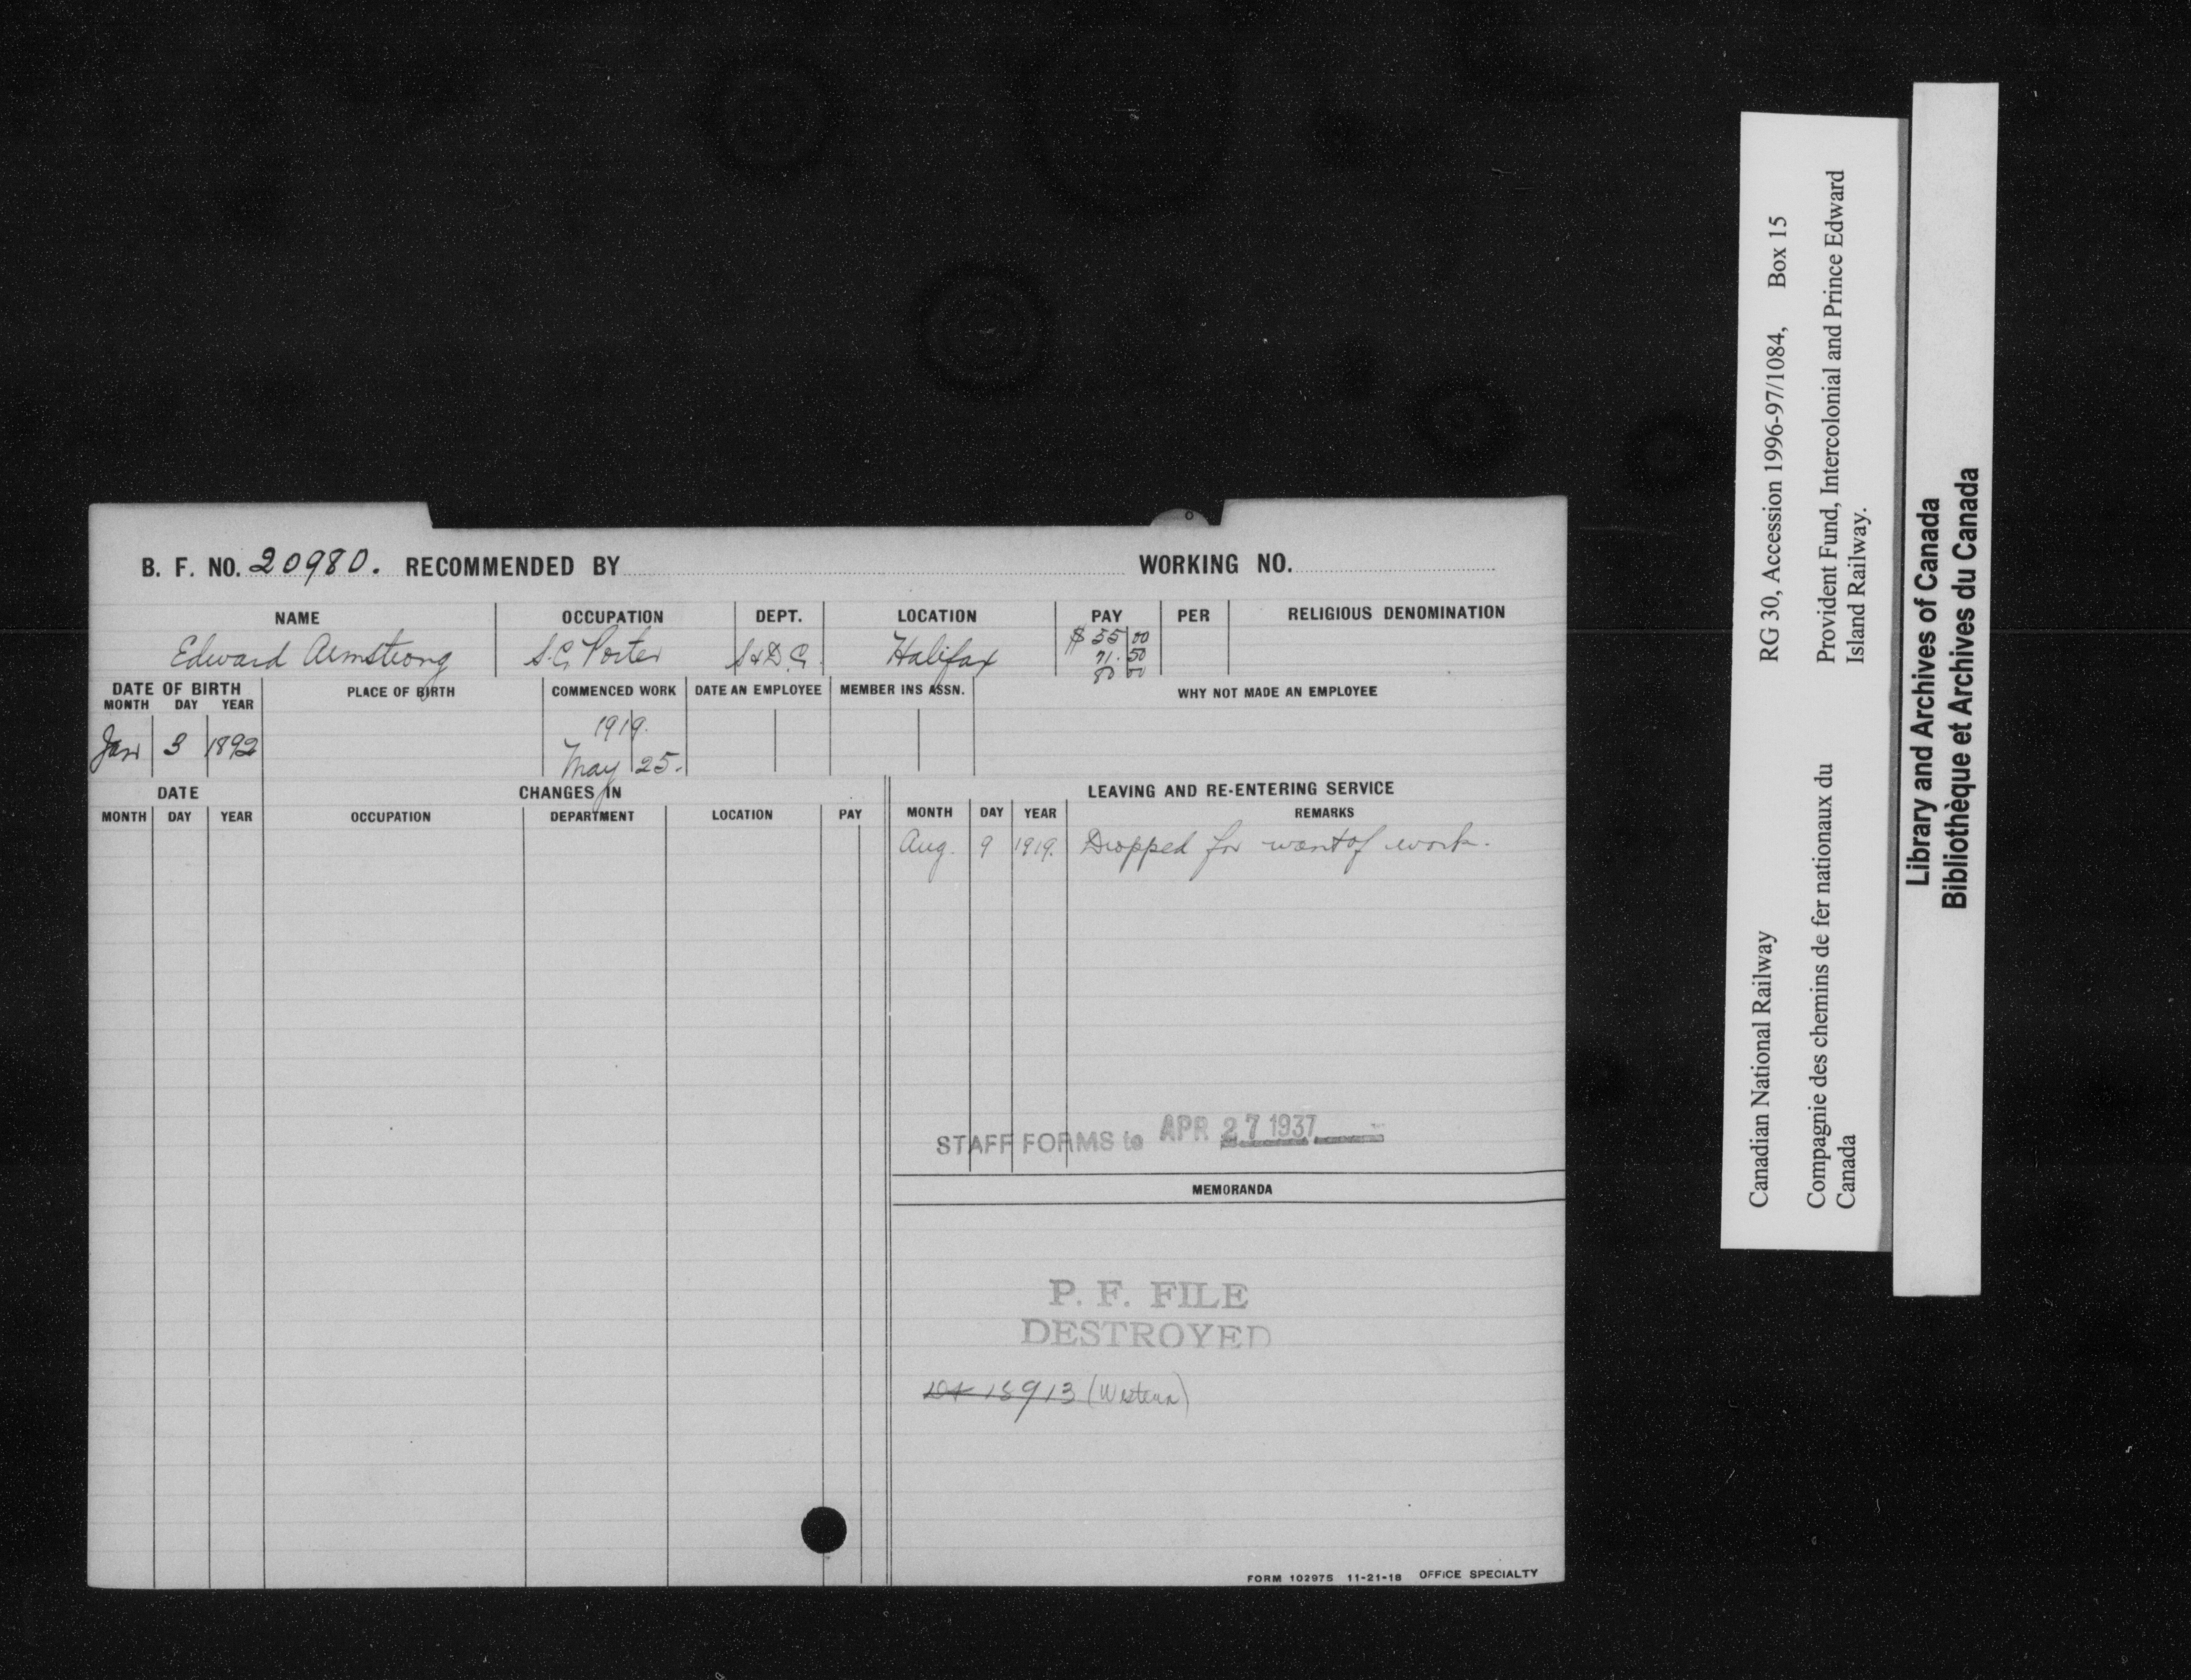 B. F. NO. 20980. RECOMMENDED BY WORKING NO.
NAME OCCUPATION DEPT. LOCATION PAY PER RELIGIOUS DENOMINATION
Edward Armstrong S.C. Porter S & D.C. Halifax $ 55 00
71. 50
80 00
DATE OF BIRTH PLACE OF BIRTH COMMENCED WORK DATE AN EMPLOYEE MEMBER INS ASSN. WHY NOT MADE AN EMPLOYEE
MONTH DAY YEAR
Jan 3 1892 1919.
May 25.
DATE CHANGES IN LEAVING AND RE-ENTERING SERVICE
MONTH DAY YEAR OCCUPATION DEPARTMENT LOCATION PAY MONTH DAY YEAR REMARKS
Aug. 9 1919. Dropped for want of work.
STAFF FORMS to APR 27 1937
MEMORANDA
P. F. FILE
DESTROYED
13913 (Western)
FORM 102975 11-21-18 OFFICE SPECIALTY
Canadian National Railway RG 30, Accession 1996-97/1084, Box 15
Compagnie des chemins de fer nationaux du Provident Fund, Intercolonial and Prince Edward
Canada Island Railway.
Library and Archives of Canada
Bibliothèque et Archives du Canada